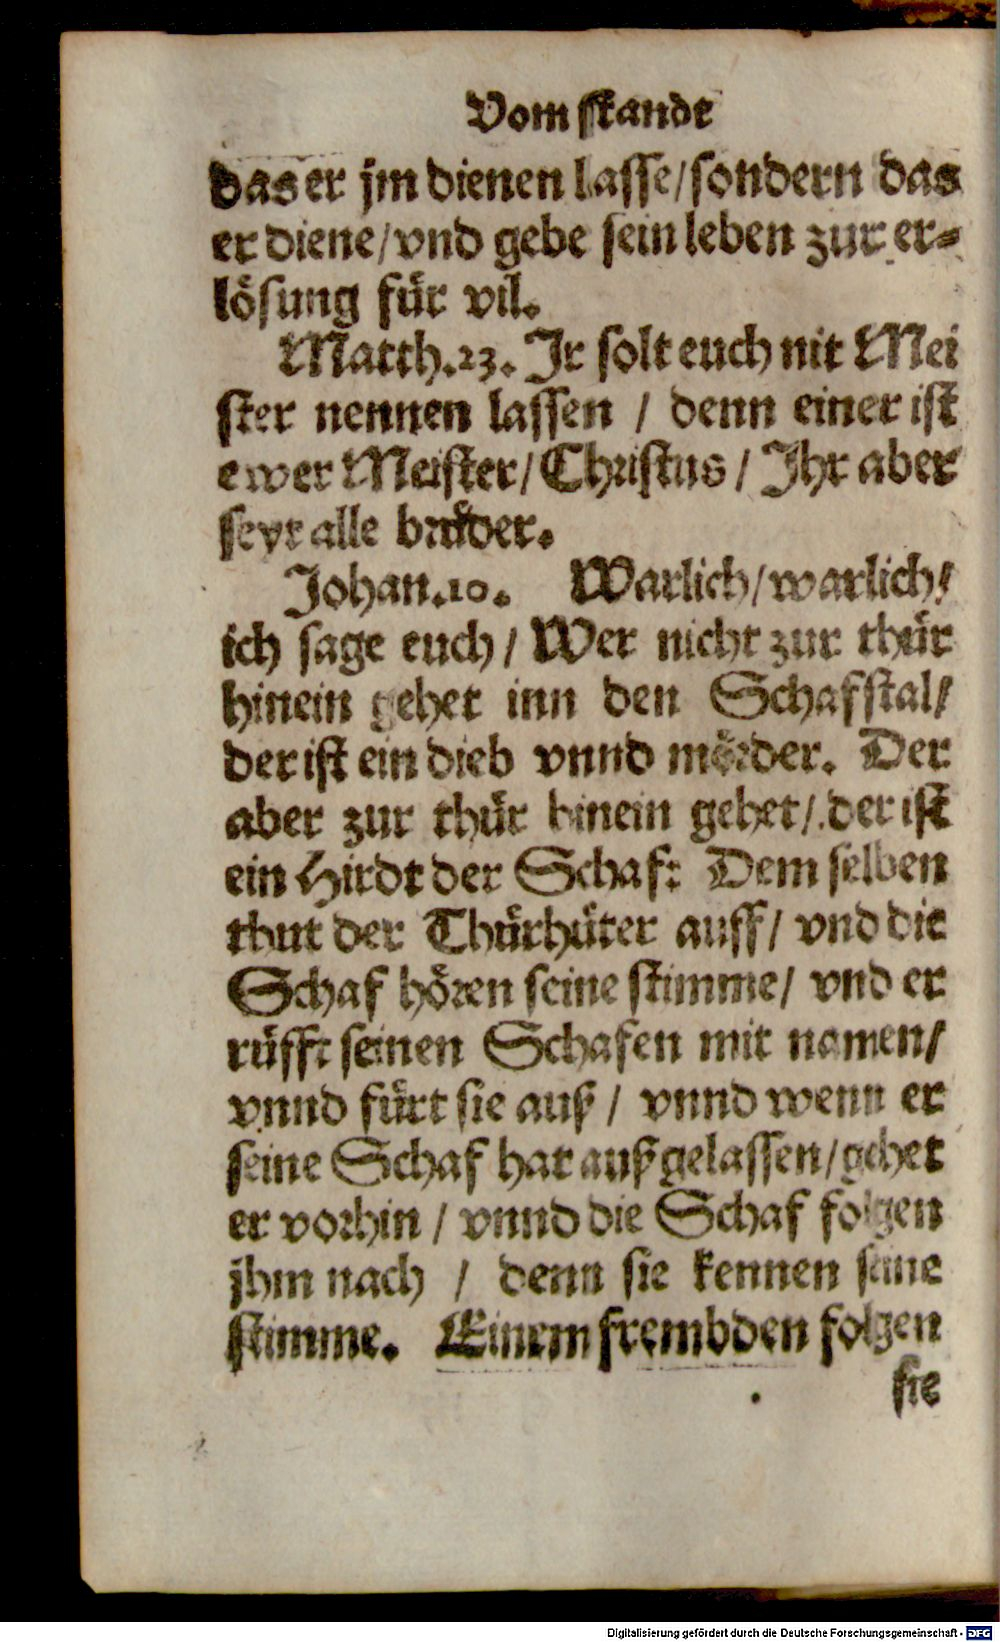 Vom standt
das er jm dienen lasse/ sondern das
er diene/ vnd gebe sein leben zur er⸗
lösung für vil.
Matth.23. Ir solt euch nit Mei
ster nennen lassen / denn einer ist
ewer Meister/ Christus / Ihr aber
seyt alle brüder.
Johan.10. Warlich/ warlich/
ich sage euch / Wer nicht zur thür
hinein gehet inn den Schafstal/
der ist ein dieb vnnd mörder. Der
aber zur thür hinein gehet/ der ist
ein Hirdt der Schaf: Dem selben
thut der Thürhüter auff/ vnd die
Schaf hören seine stimme/ vnd er
rüfft seinen Schafen mit namen/
vnnd fürt sie auß / vnnd wenn er
seine Schaf hat außgelassen/ gehet
er vorhin / vnnd die Schaf folgen
jhm nach / denn sie kennen seine
stimme. Einem frembden folgen
sie
Digitalisierung gefördert durch die Deutsche Forschungsgemeinschaft - DFG